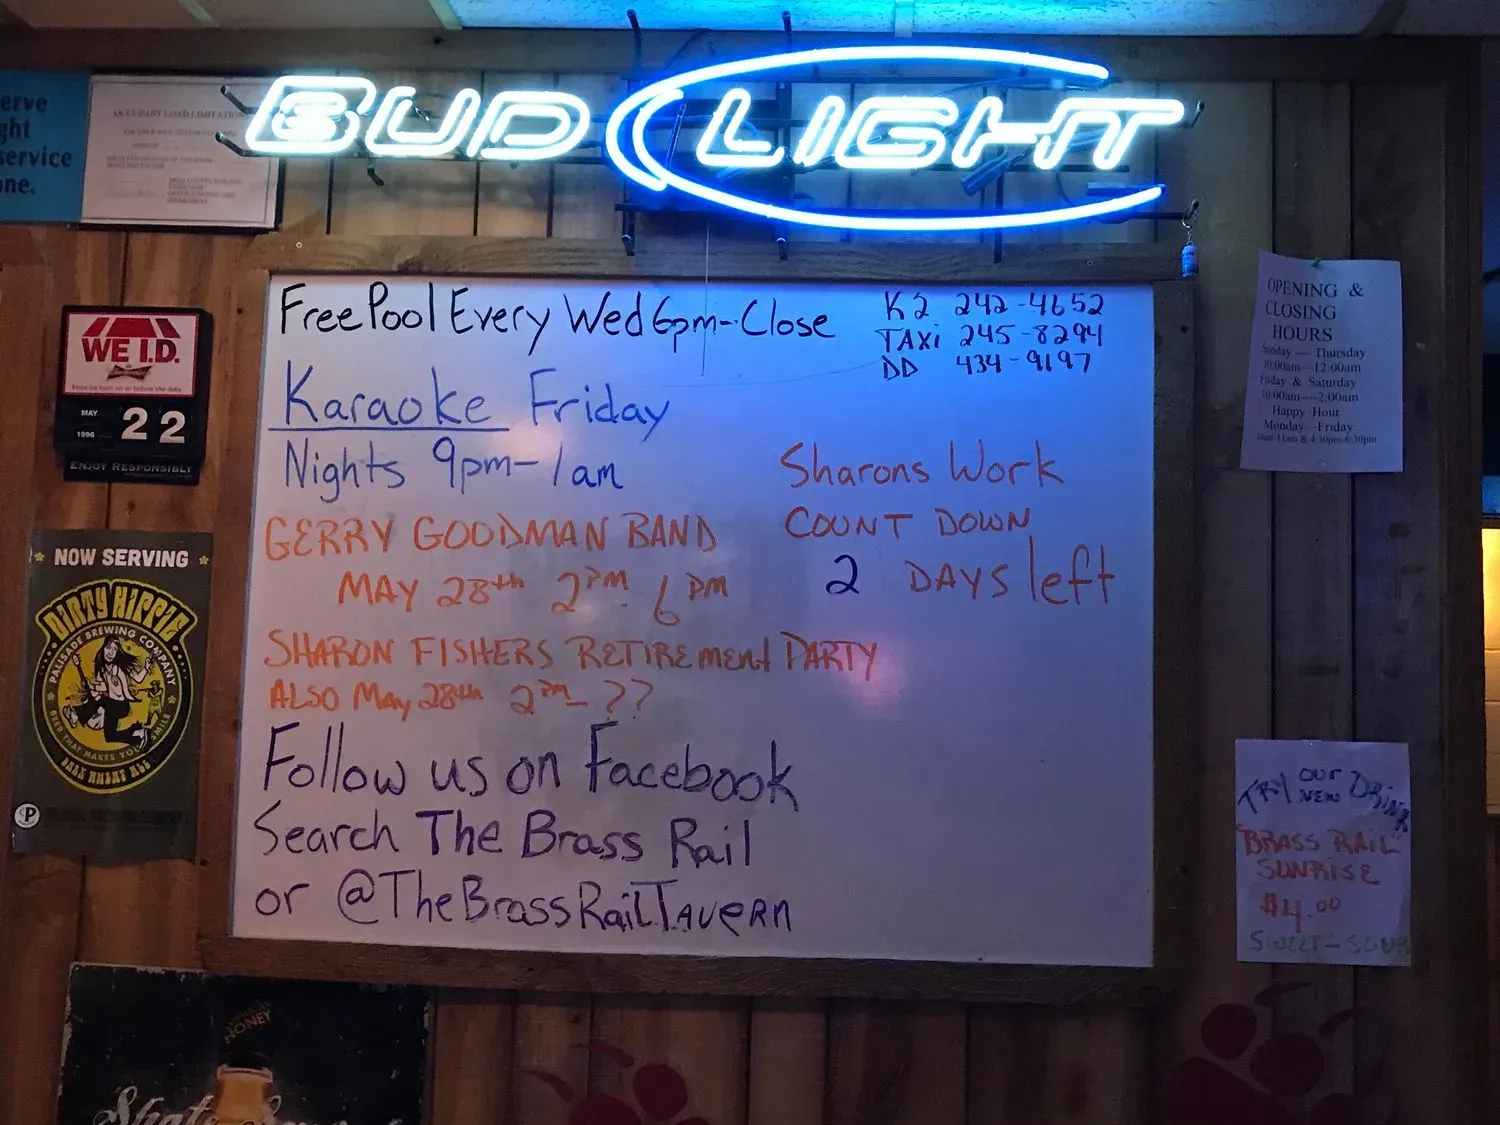 BUD LIGHT
erve
ght
service
one.
OCCUPANT LOAD LIMITATION
WE I.D.
Must be born on or before the date
MAY
1996
22
ENJOY RESPONSIBLY
NOW SERVING
DIRTY HIPPIE
PALISADE BREWING COMPANY
BEER THAT MAKES YOU SMILE
DARK WHEAT ALE
P
HONEY
Free Pool Every Wed 6pm-Close
K2 242-4652
TAXi 245-8294
DD 434-9197
Karaoke Friday
Nights 9pm-1am
GERRY GOODMAN BAND
MAY 28th 2PM- 6PM
SHARON FISHERS RETIREment PARTY
ALSO May 28th 2PM- ??
Sharons Work
COUNT DOWN
2 DAYS left
Follow us on Facebook
Search The Brass Rail
or @TheBrassRailTavern
OPENING &
CLOSING
HOURS
Sunday --- Thursday
10:00am---12:00am
Friday & Saturday
10:00am----2:00am
Happy Hour
Monday--Friday
10am-11am & 4:30pm-6:30pm
TRY OUR NEW DRINK
BRASS RAIL
SUNRISE
$4.00
SWEET-SOUR